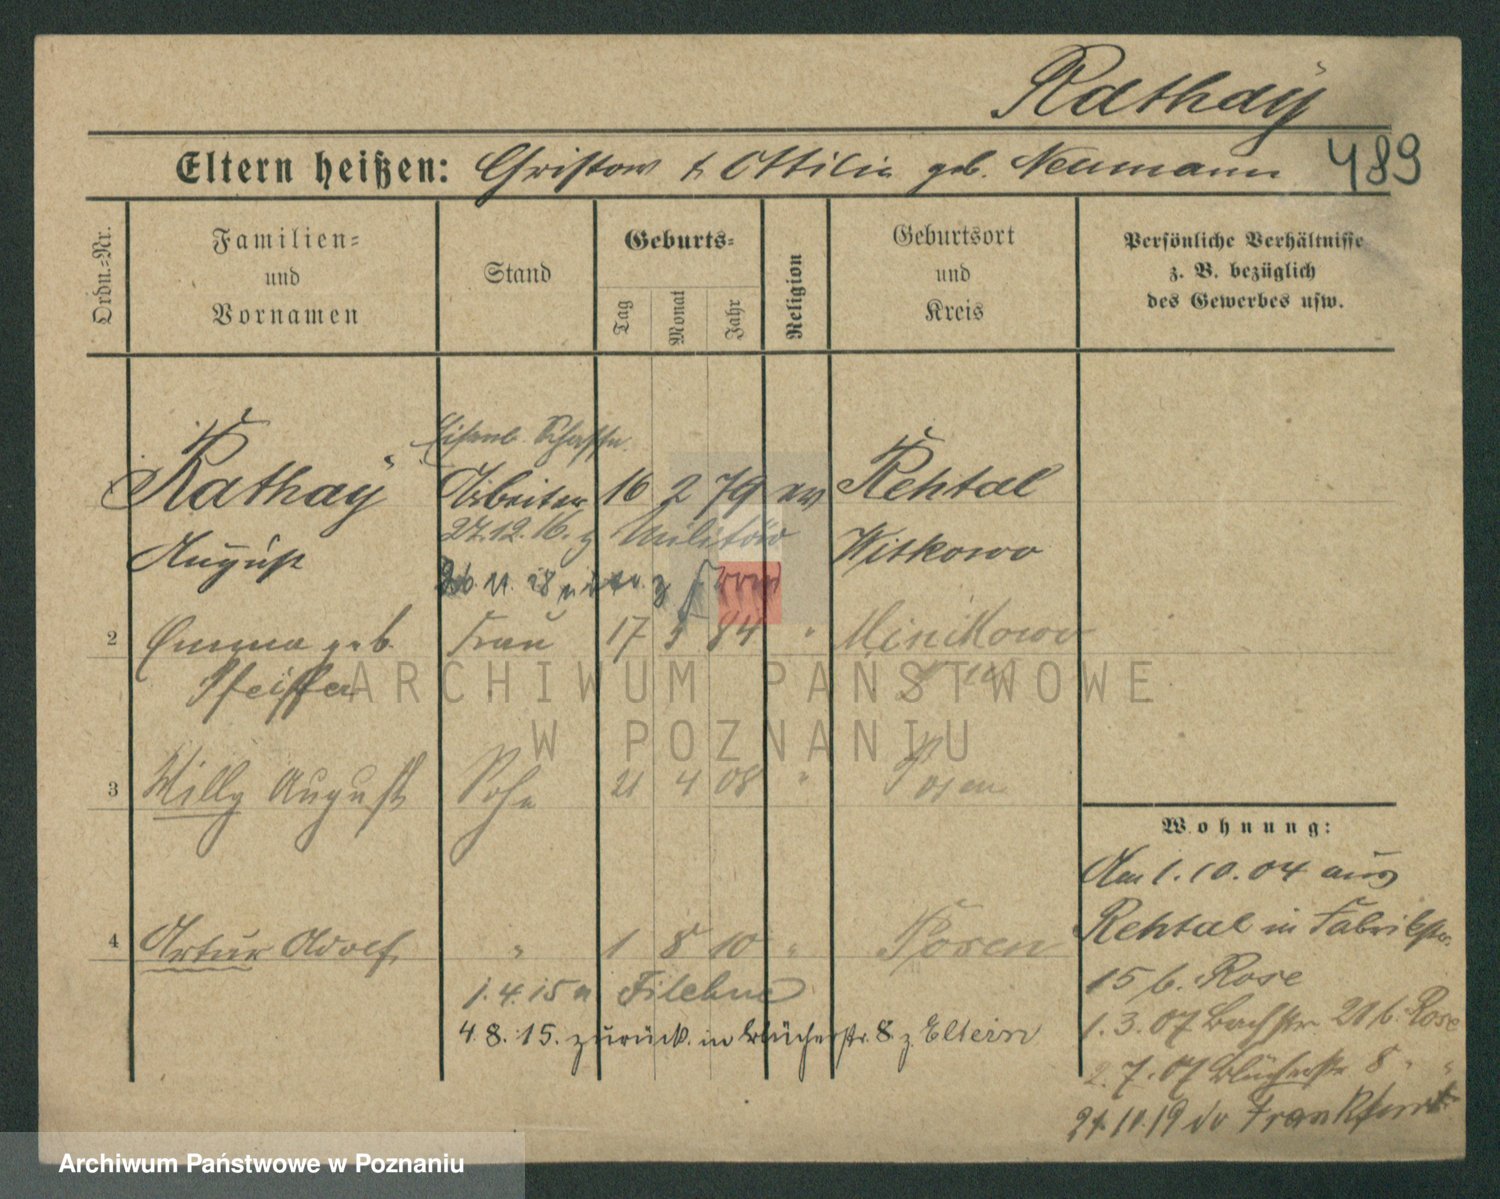 Rathaÿ
489
Eltern heißen: Christow u Ottilie geb. Neumann
Ordn.=Nr.
Familien=
und
Vornamen
Stand
Geburts=
Tag
Monat
Jahr
Religion
Geburtsort
und
Kreis
Persönliche Verhältnisse
z. B. bezüglich
des Gewerbes usw.
Eisenb. Schaffn.
Rathaÿ Arbeiter 16 2 79 ev Rehtal
27.12.16. z Militär
August Witkowo
2 Emma geb. Frau 17 5 84 " Minikowo
Pfeiffer
3 Willy August Sohn 21 4 08 " Posen
4 Artur Adolf " 1 8 10 " Posen
1.4.15 n Filehne
4.8.15. zurück. in Blücherstr. 8 z Eltern
Wohnung:
Am 1.10.04 aus
Rehtal in Fabrikstr.
15 b. Rose
1.3.07 Bachstr. 20 b. Rose
2.7.07 Blücherstr 8 " "
Frankfurt
ARCHIWUM PAŃSTWOWE
W POZNANIU
Archiwum Państwowe w Poznaniu